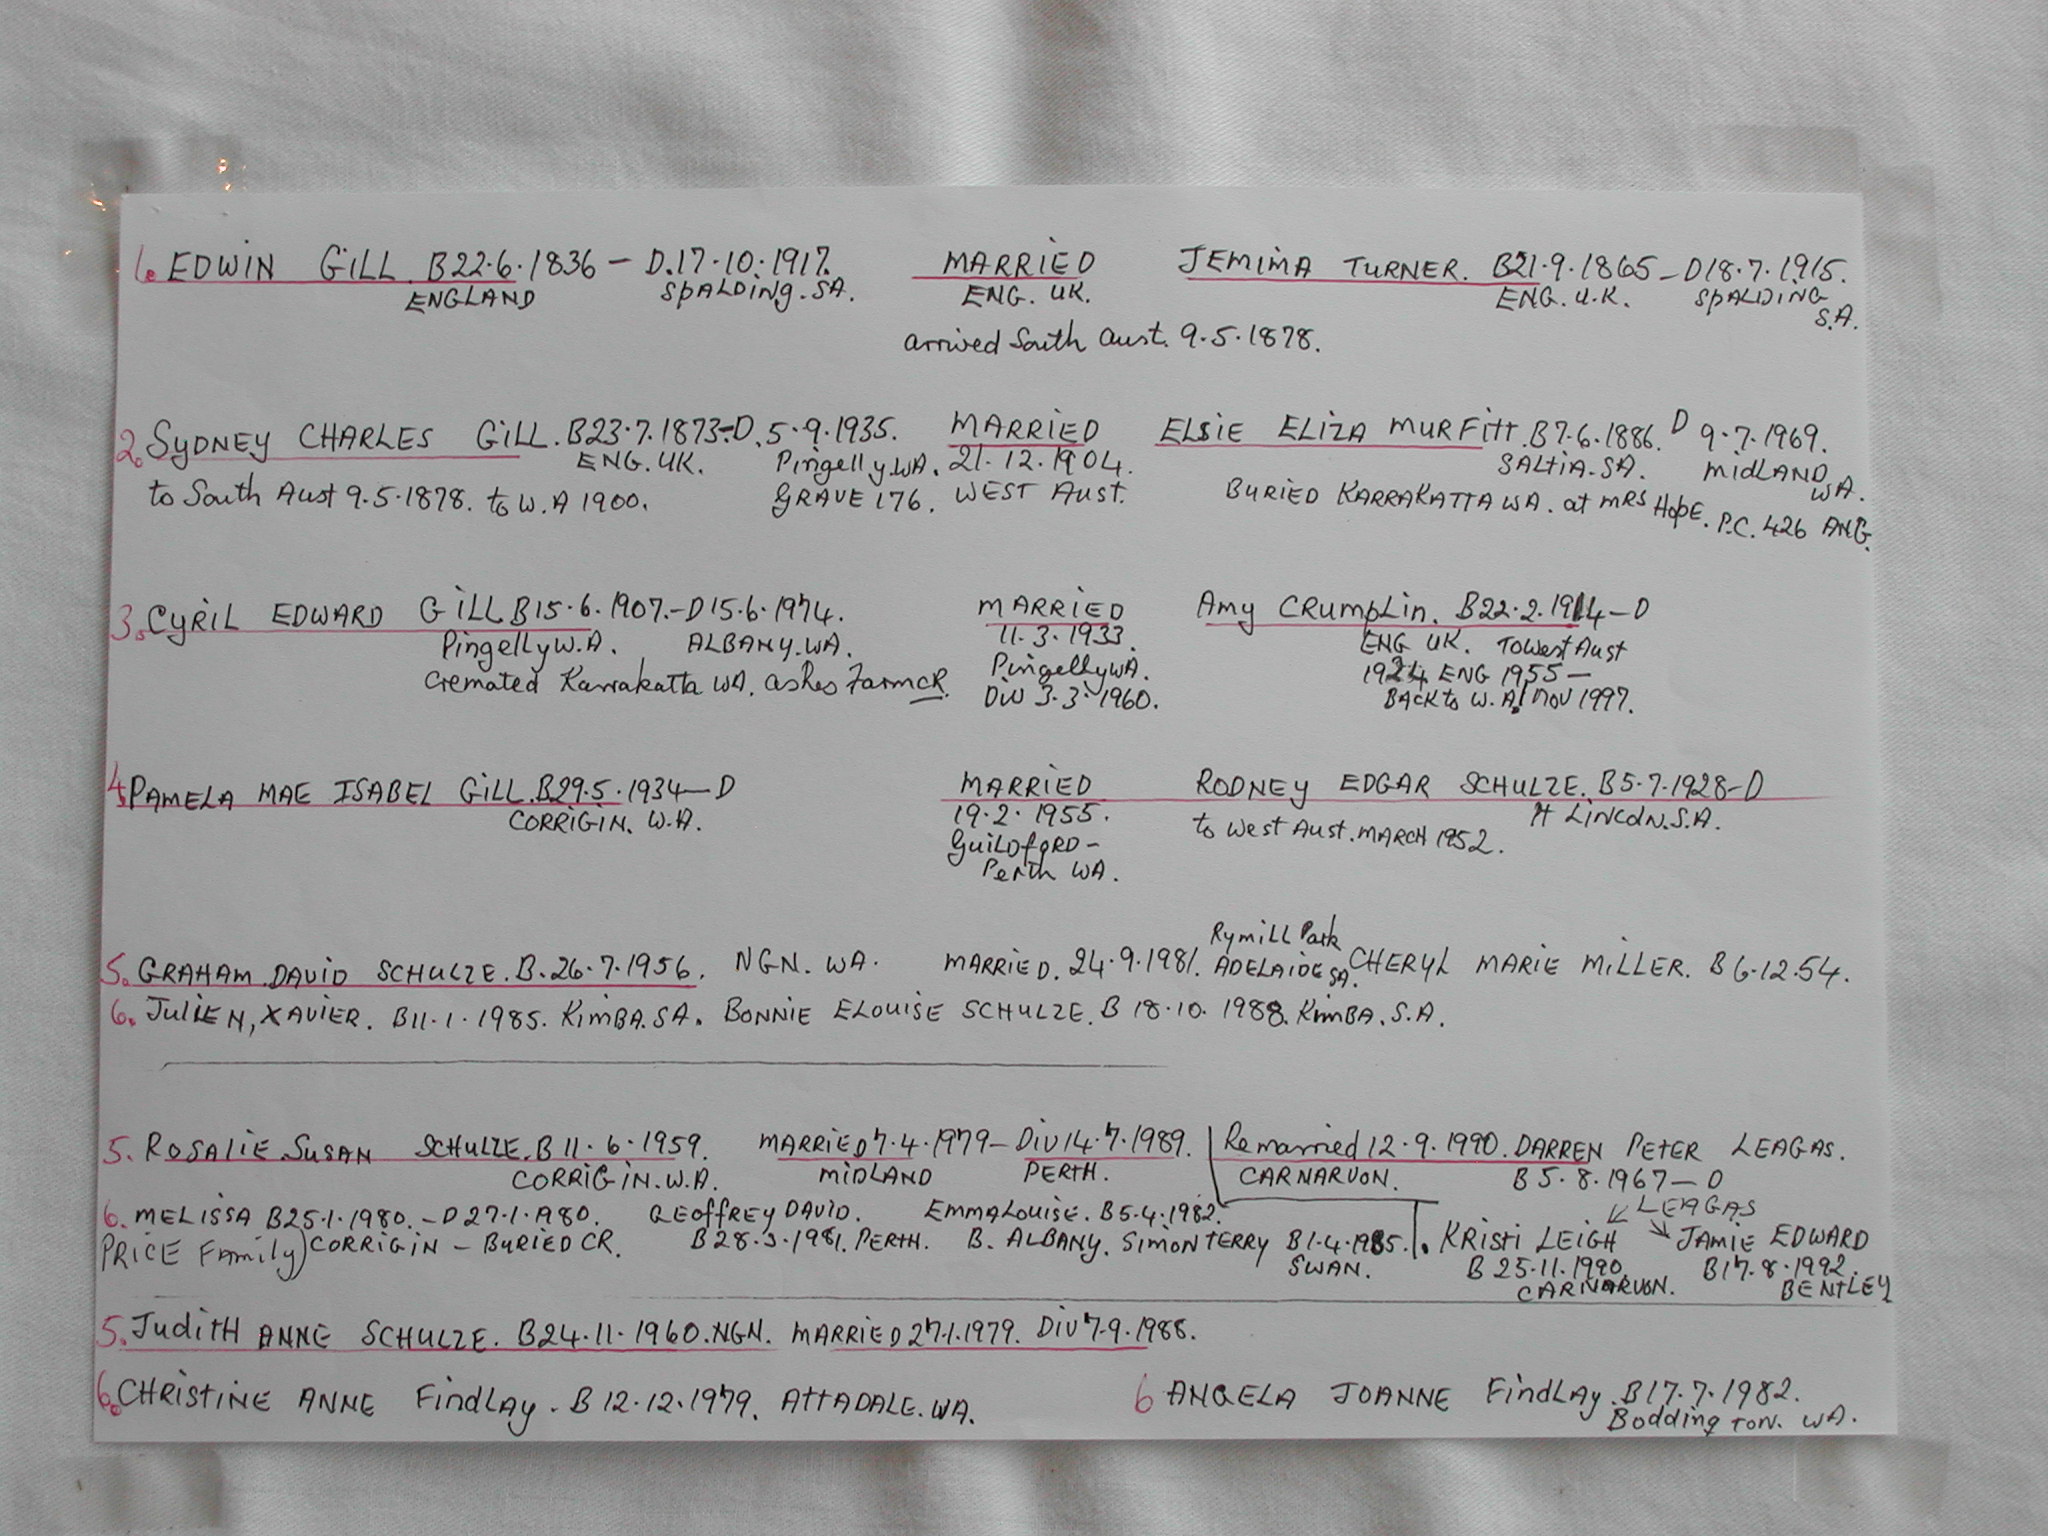 1. EDWIN GILL. B22.6.1836 – D.17.10.1917. MARRIED JEMIMA TURNER. B21.9.1865 – D18.7.1915.
ENGLAND SPALDING. SA. ENG. UK. ENG. U.K. SPALDING
S.A.
arrived South Aust. 9.5.1878.
2. SYDNEY CHARLES GILL. B23.7.1873–D.5.9.1935. MARRIED ELSIE ELIZA MURFITT. B7.6.1886. D 9.7.1969.
ENG. UK. Pingelly.WA. 21.12.1904. SALTIA.SA. MIDLAND
WA.
to South Aust 9.5.1878. to W.A 1900. GRAVE 176. WEST AUST. BURIED KARRAKATTA WA. at MRS HOPE. P.C. 426 ANG.
3. CYRIL EDWARD GILL B15.6.1907.–D15.6.1974. MARRIED AMY CRUMPLIN. B22.2.1914–D
Pingelly W.A. ALBANY.WA. 11.3.1933. ENG UK. TO West Aust
cremated Karrakatta WA. ashes Farm CR. Pingelly WA. 1924 ENG 1955–
DIV 3.3.1960. BACK to W.A. NOV 1997.
4. PAMELA MAE ISABEL GILL. B29.5.1934–D MARRIED RODNEY EDGAR SCHULZE. B5.7.1928–D
CORRIGIN. W.A. 19.2.1955. to West Aust. MARCH 1952. Pt LINCOLN. S.A.
GUILDFORD –
Perth WA.
Rymill Park
5. GRAHAM DAVID SCHULZE. B.26.7.1956. NGN. WA. MARRIED. 24.9.1981. ADELAIDE SA. CHERYL MARIE MILLER. B 6.12.54.
6. JULIEN, XAVIER. B11.1.1985. KIMBA.SA. BONNIE ELOUISE SCHULZE. B 18.10.1988. KIMBA. S.A.
5. ROSALIE SUSAN SCHULZE. B 11.6.1959. MARRIED 7.4.1979– DIV 14.7.1989. Remarried 12.9.1990. DARREN PETER LEAGAS.
CORRIGIN.W.A. MIDLAND PERTH. CARNARVON. B 5.8.1967–D
LEAGAS
6. MELISSA B25.1.1980.–D27.1.1980. GEOFFREY DAVID. EMMALOUISE. B5.4.1982.
PRICE Family) CORRIGIN – BURIED CR. B28.3.1981. PERTH. B. ALBANY. SIMON TERRY B1.4.1985. KRISTI LEIGH JAMIE EDWARD
SWAN. B 25.11.1990. B17.8.1992.
CARNARVON. BENTLEY
5. JUDITH ANNE SCHULZE. B24.11.1960.NGN. MARRIED 27.1.1979. DIV 7.9.1988.
6. CHRISTINE ANNE FINDLAY. B 12.12.1979. ATTADALE.WA. 6 ANGELA JOANNE FINDLAY. B17.7.1982.
Boddington. WA.